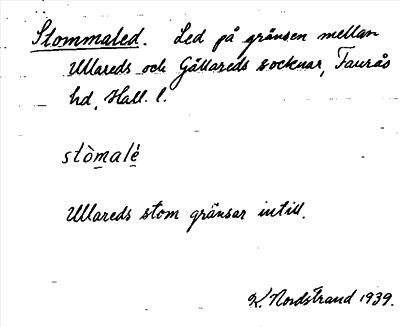 Stommaled. Led på gränsen mellan
Ullareds och Gällareds socknar, Faurås
hd, Hall. l.
stòmalé
Ullareds stom gränsar intill.
K. Nordstrand 1939.